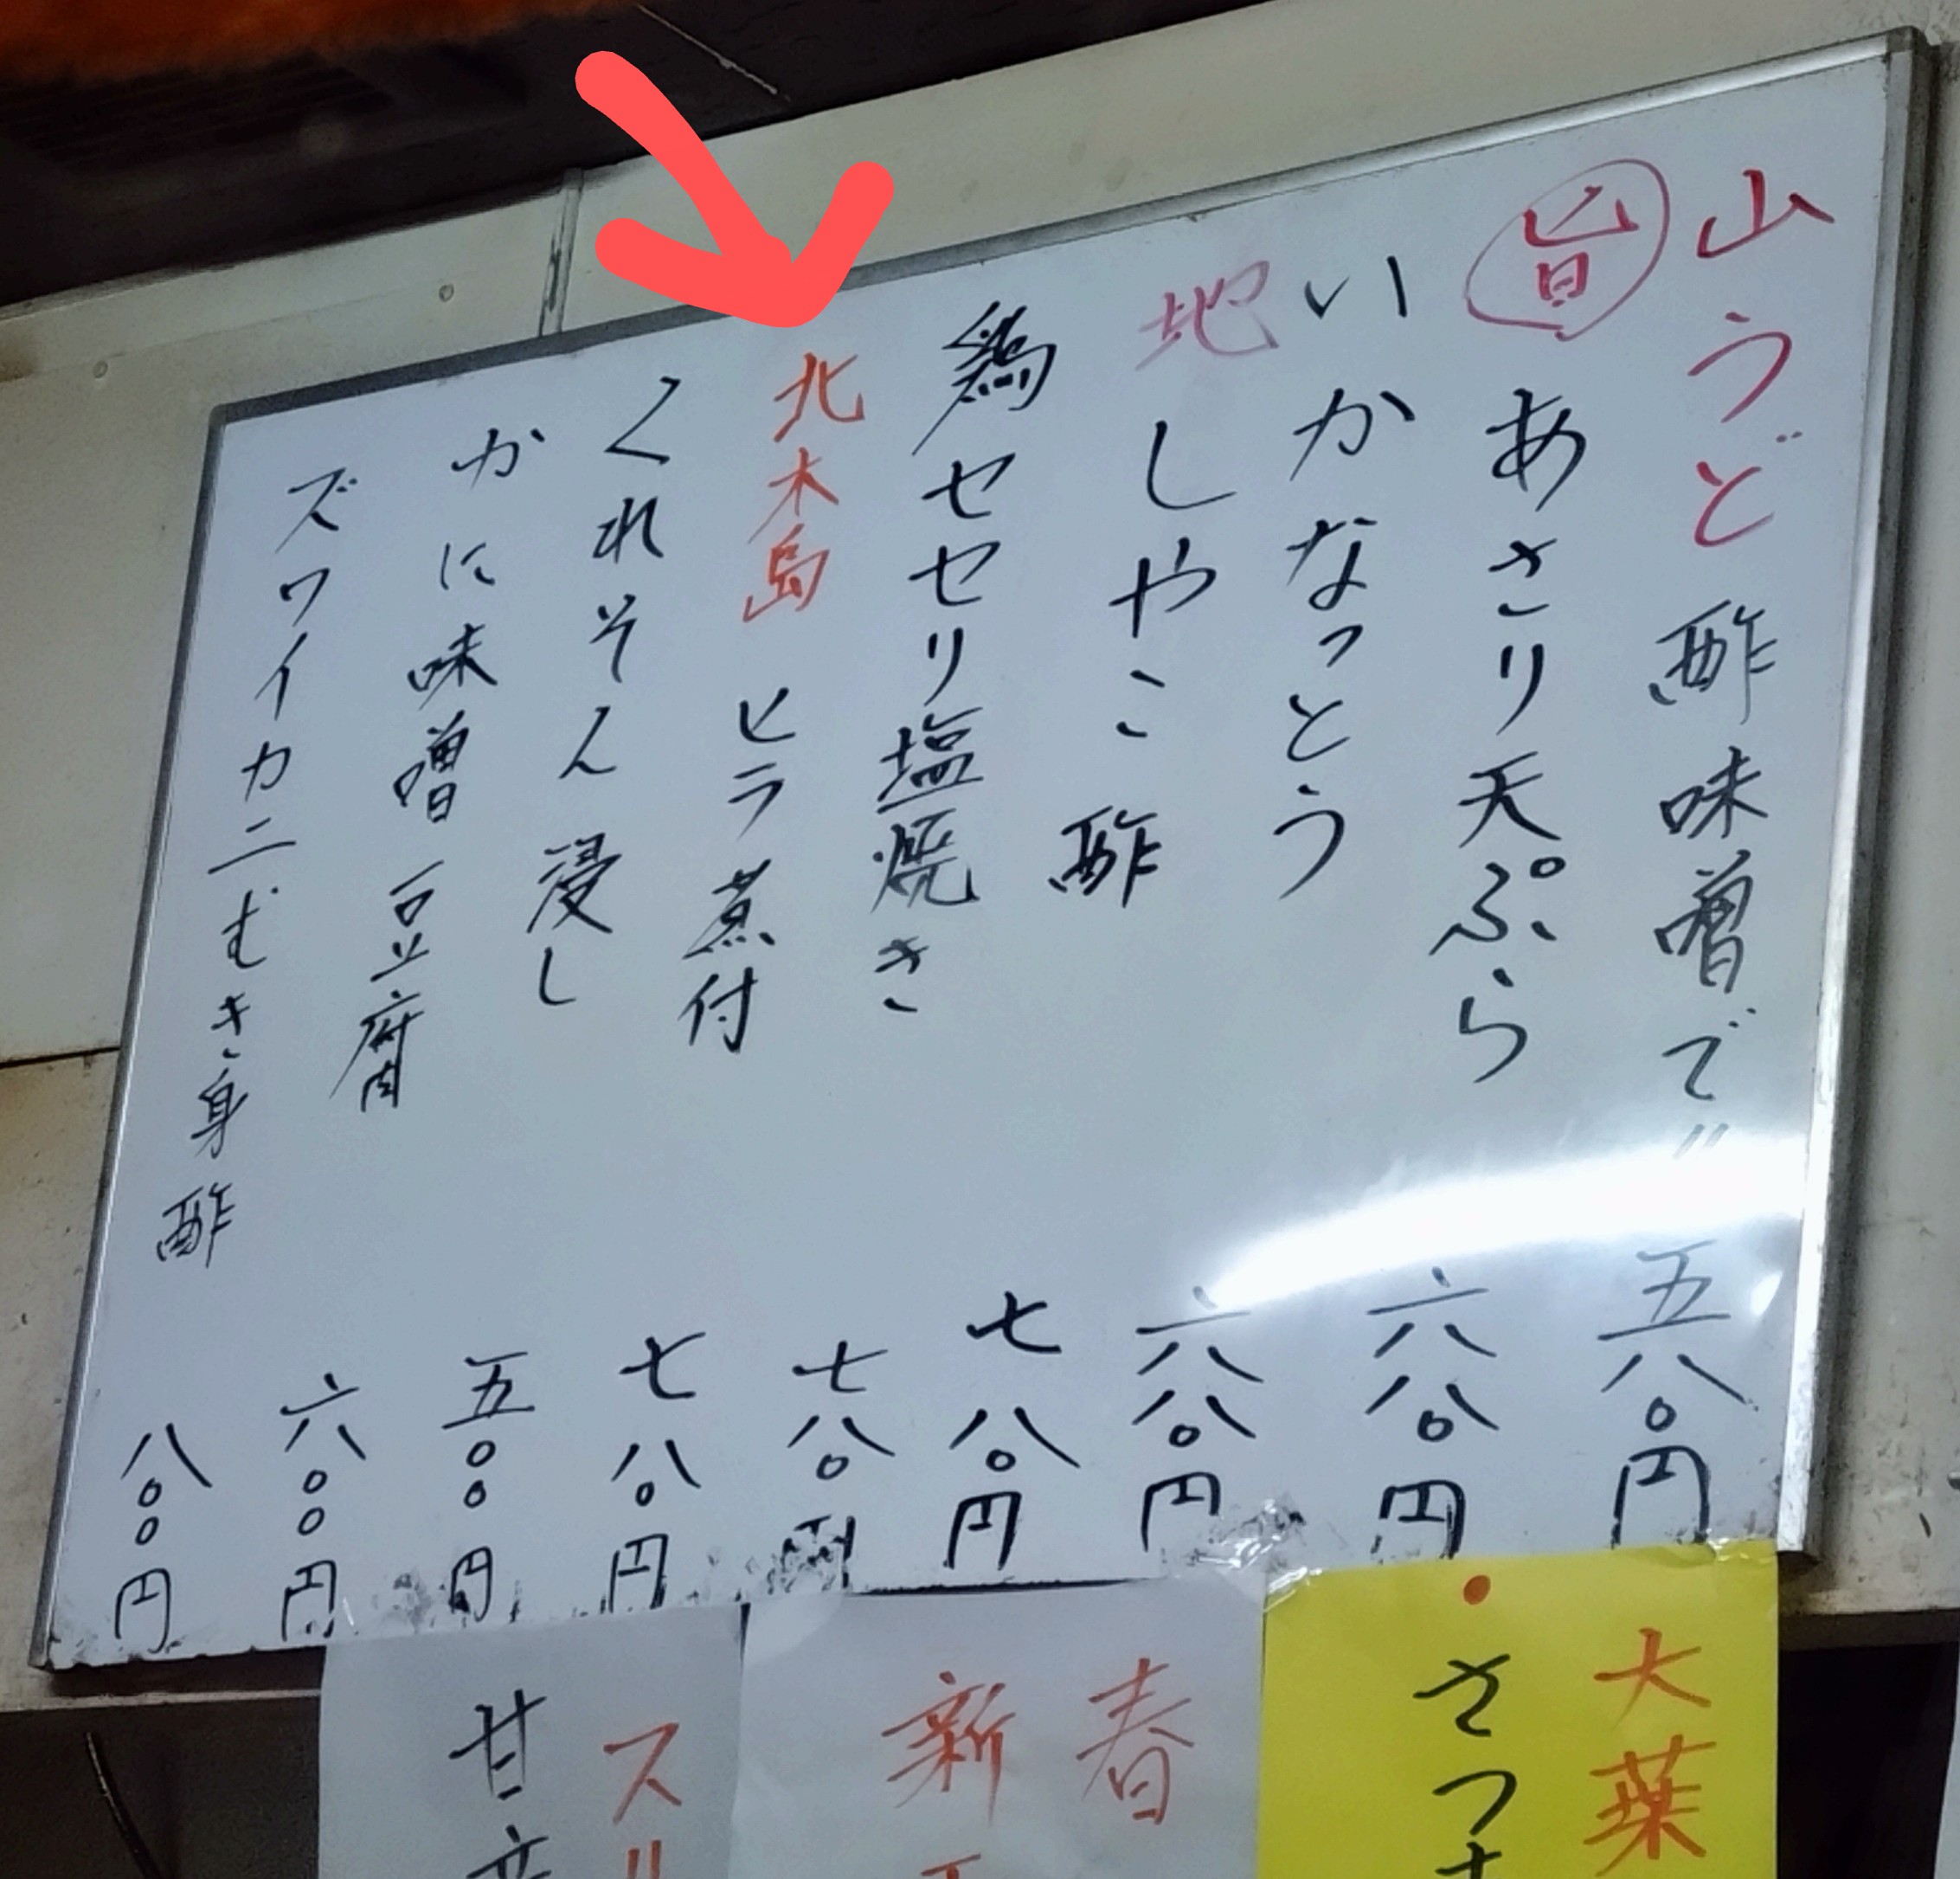 山うど 酢味噌で〃 五八〇円
旨 あさり天ぷら 六八〇円
いかなっとう 六八〇円
地しやこ酢 七八〇円
鶏セセリ塩焼き 七八〇円
北木島 ヒラ煮付 七八〇円
くれそん浸し 五〇〇円
かに味噌豆腐 六〇〇円
ズワイカニむき身酢 八〇〇円
大葉
・さつ
春
新
ス
甘